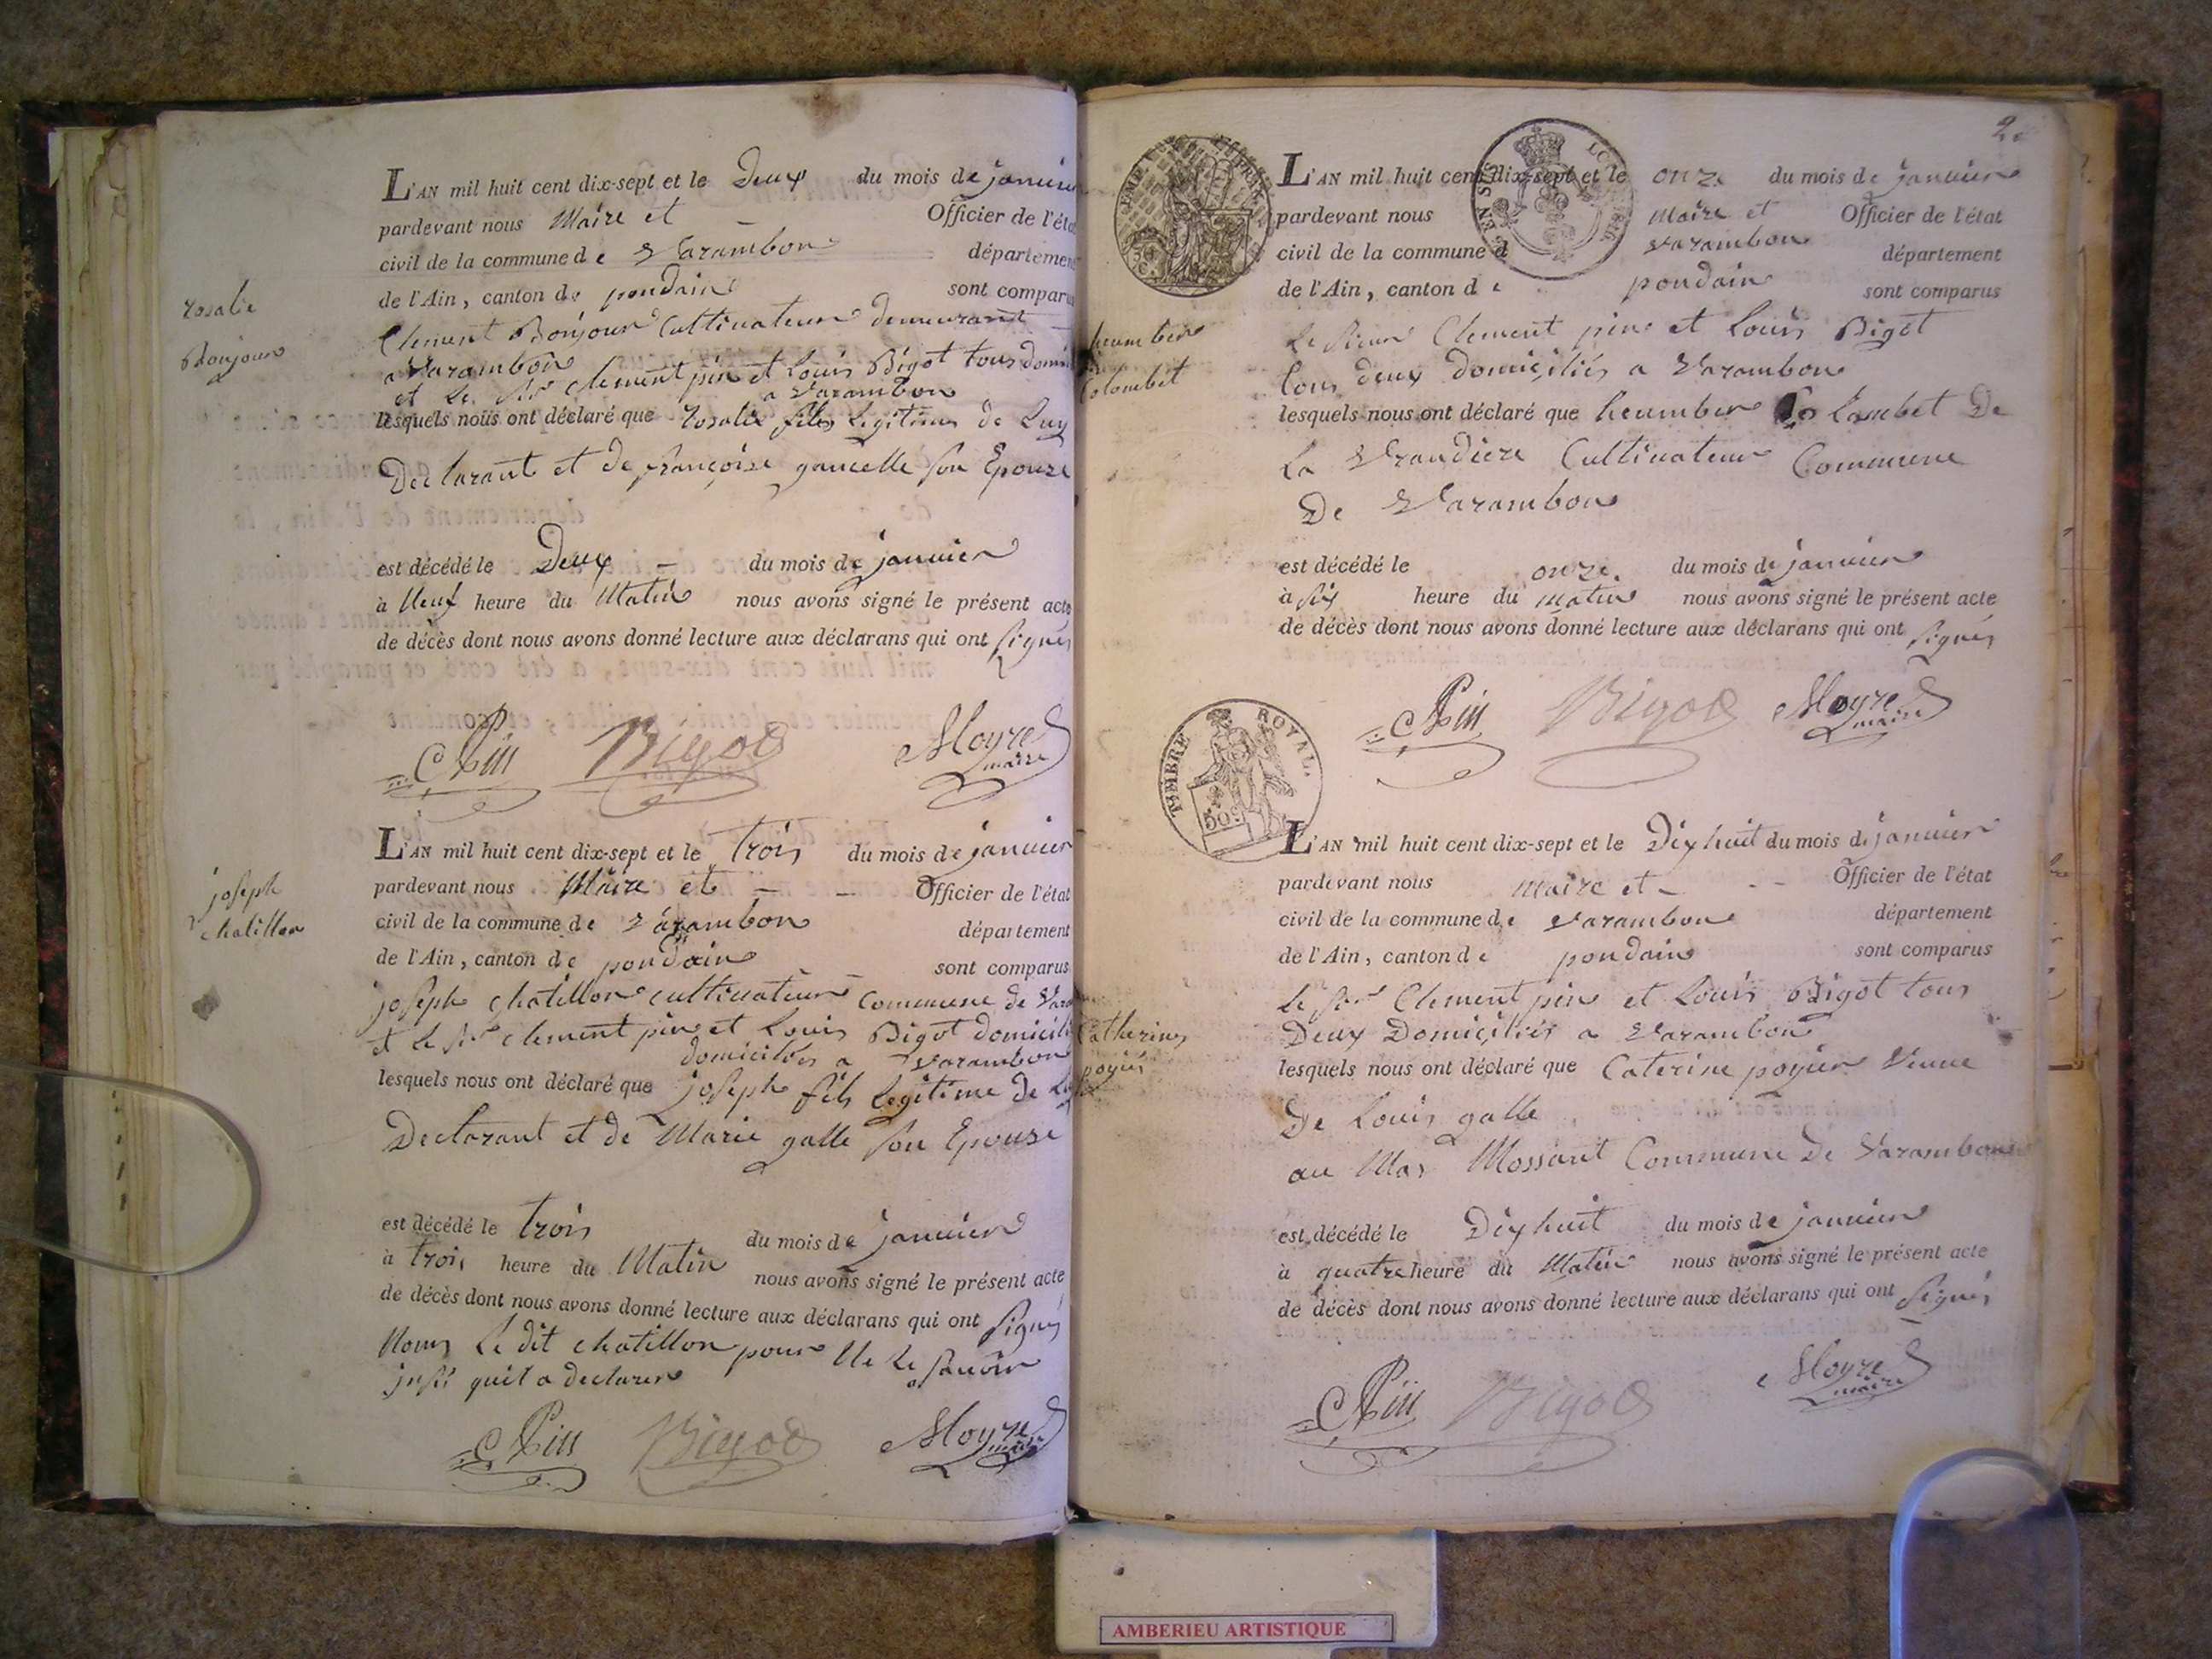 rosalie
Bonjour
L'AN mil huit cent dix-sept et le Deux du mois de janvier
pardevant nous Maire et — Officier de l'état
civil de la commune de Varambon département
de l'Ain, canton de pondain sont comparus
Clement Bonjour Cultivateur demeurant
a Varambon
et le Sr Clement pin et Louis Bigot tous
a Varambon
lesquels nous ont déclaré que rosalie fille Legitime de Luy
Declarant et de françoise gancelle son Epouse
est décédé le Deux — du mois de janvier
à Neuf heure du Matin nous avons signé le présent acte
de décès dont nous avons donné lecture aux déclarans qui ont signés
C Pin Bigot Moyret
maire
joseph
chatillon
L'AN mil huit cent dix-sept et le trois du mois de janvier
pardevant nous Maire et — — Officier de l'état
civil de la commune de Varambon département
de l'Ain, canton de pondain sont comparus
joseph chatillon cultivateur Commune de
et le Sr clement pin et Louis Bigot
domiciliés a Varambon
lesquels nous ont déclaré que joseph fils Legitime de
Declarant et de Marie galle son Epouse
est décédé le trois du mois de janvier
à trois heure du Matin nous avons signé le présent acte
de décès dont nous avons donné lecture aux déclarans qui ont signés
Nous Le dit chatillon pour Ne le savoir
insi quil a declarer
C Pin Bigot Moyret
maire
2e
TIMBRE ROYAL.
50c
heumber
Colombet
L'AN mil huit cent dix-sept et le onze du mois de janvier
pardevant nous maire et Officier de l'état
civil de la commune d varambon département
de l'Ain, canton de pondain sont comparus
Le sieur Clement pin et Louis Bigot
tous deux Domiciliés a Varambon
lesquels nous ont déclaré que heumber Colombet De
La Cultivateur Commune
De Varambon
est décédé le onze. du mois de janvier
à six heure du matin nous avons signé le présent acte
de décès dont nous avons donné lecture aux déclarans qui ont signés
C Pin Bigot Moyret
maire
Catherine
poyié
L'AN mil huit cent dix-sept et le Dixhuit du mois de janvier
pardevant nous maire et — Officier de l'état
civil de la commune de varambon département
de l'Ain, canton de pondain sont comparus
Le Sr Clement pin et Louis Bigot tous
Deux Domiciliés a varambon
lesquels nous ont déclaré que Caterine poyier Veuve
De Louis galle
au Mas Mossant Commune De Varambon
est décédé le Dixhuit du mois de janvier
à quatre heure du Matin nous avons signé le présent acte
de décès dont nous avons donné lecture aux déclarans qui ont signés
C Pin Bigot Moyret
maire
AMBERIEU ARTISTIQUE